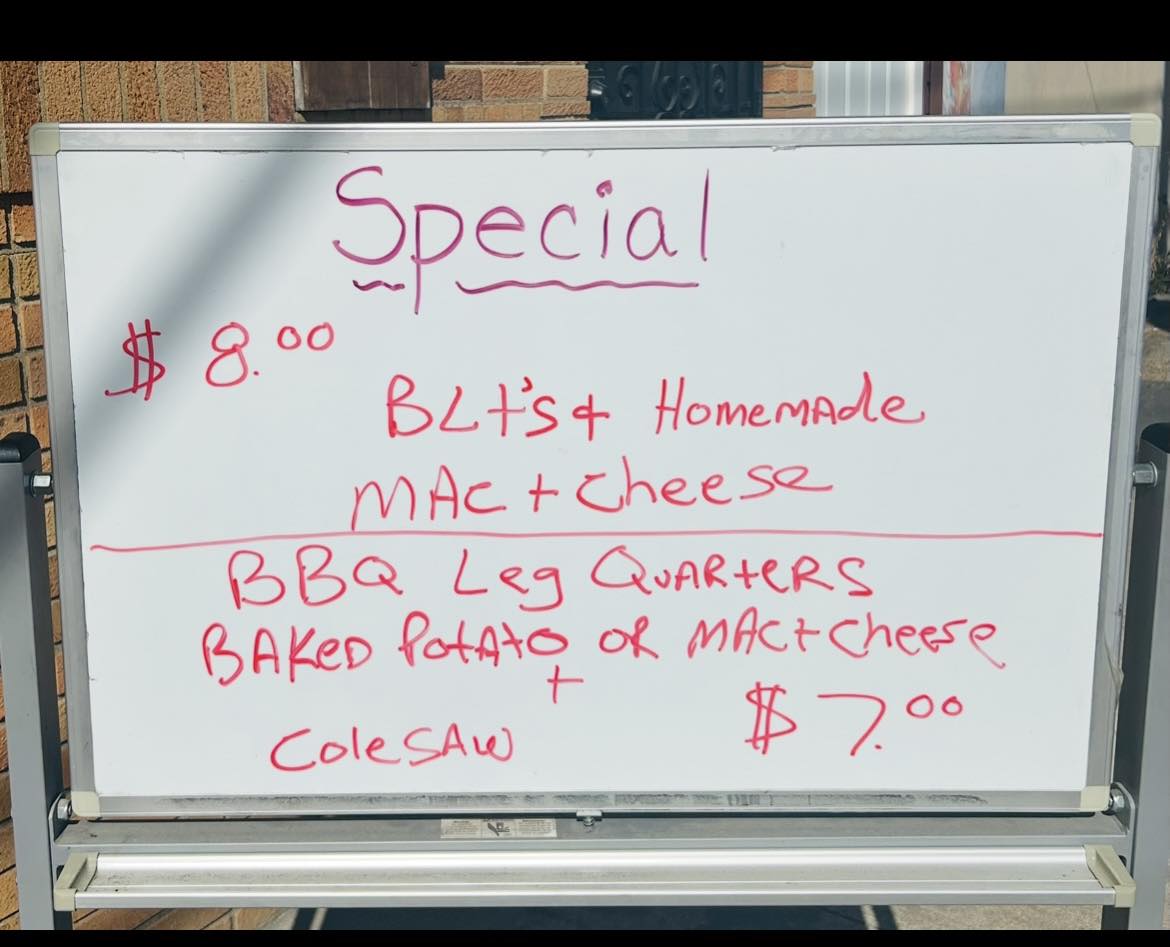 Special
$ 8.00
BLT's + Homemade
MAC + Cheese
BBQ Leg QuARteRS
BAKeD PotAto oR MAC + Cheese
+
ColeSAW
$ 7.00